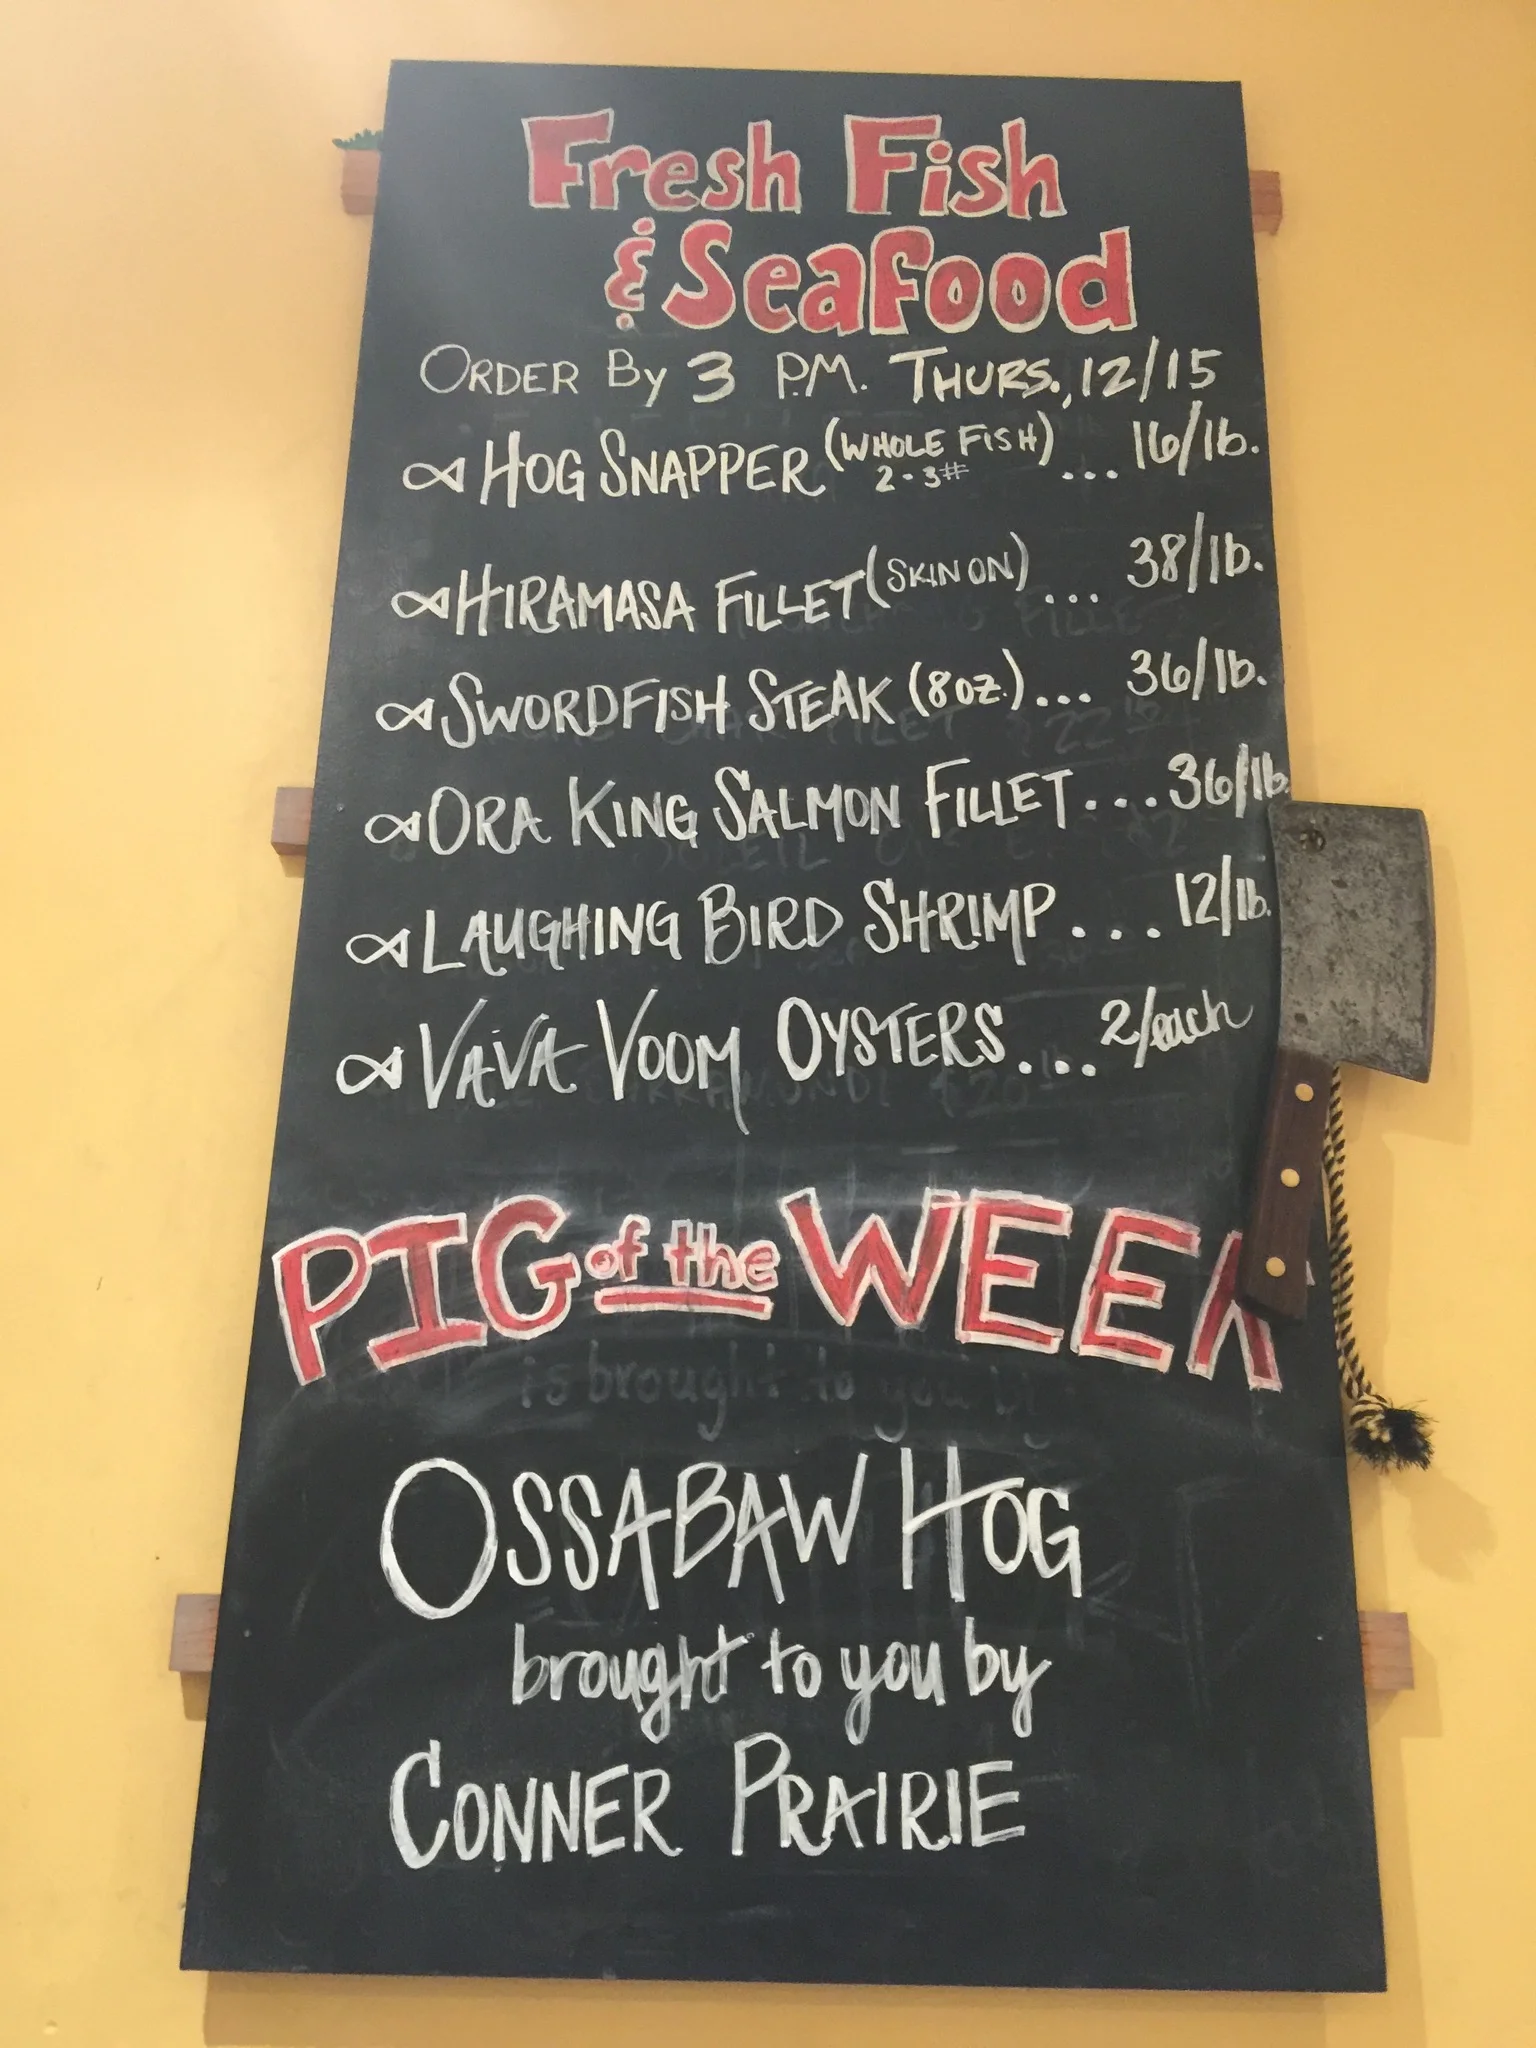 Fresh Fish
& Seafood
ORDER By 3 P.M. THURS., 12/15
HOG SNAPPER (WHOLE FISH) ... 16/lb.
2-3#
HIRAMASA FILLET (SKIN ON) ... 38/lb.
SWORDFISH STEAK (8 OZ.) ... 36/lb.
ORA KING SALMON FILLET ... 36/lb.
LAUGHING BIRD SHRIMP .... 12/lb.
VAVA VOOM OYSTERS .... 2/each
PIG of the WEEK
is brought to you by
OSSABAW HOG
brought to you by
CONNER PRAIRIE